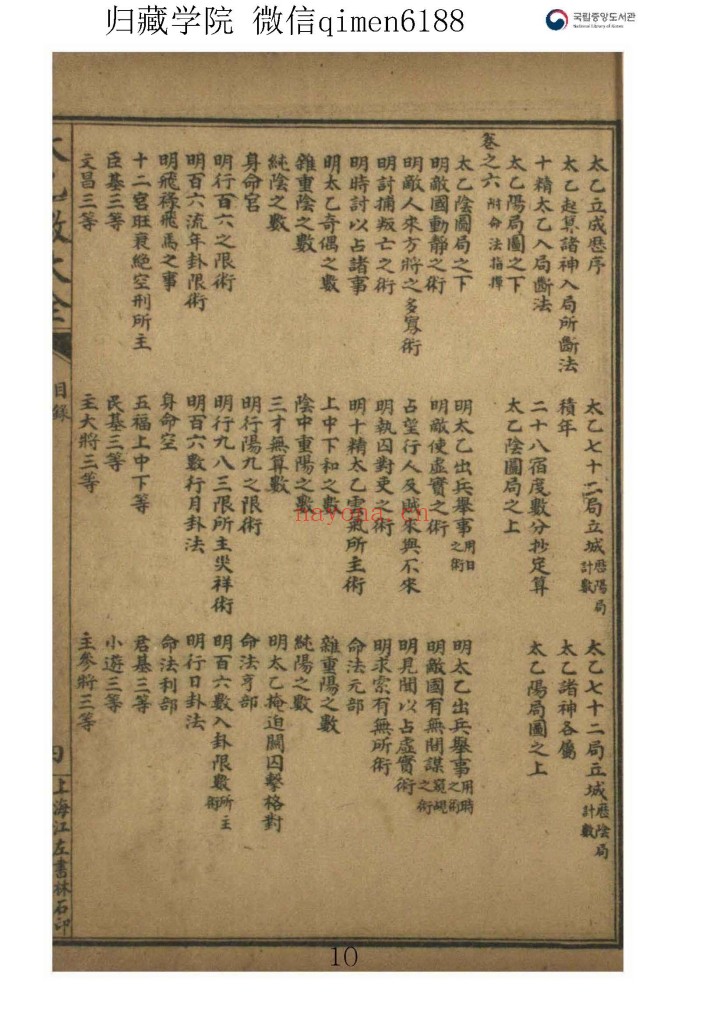 归藏学院 微信qimen6188
국립중앙도서관
National Library of Korea
太乙立成歷序 太乙七十二局立城歷陽局計數 太乙七十二局立城歷陰局計數
太乙起算諸神入局所斷法 積年 太乙諸神各屬
十精太乙入局斷法 二十八宿度數分抄定算 太乙陽局圖之上
太乙陽局圖之下 太乙陰圖局之上
卷之六 附命法指擇
太乙陰圖局之下 明太乙出兵舉事用日之術 明太乙出兵舉事用時之術
明敵國動靜之術 明敵使虛實之術 明敵國有無間諜窺覘之術
明敵人來方將之多寡術 占望行人及賊來與不來 明見聞以占虛實術
明討捕叛亡之術 明執囚對吏之術 明求索有無所術
明時計以占諸事 明十精太乙雲氣所主術 命法元部
明太乙奇偶之數 上中下和之數 雜重陽之數
雜重陰之數 陰中重陽之數 純陽之數
純陰之數 三才無算數 明太乙掩迫關囚擊格對
身命宮 明行陽九之限術 命法亨部
明行百六之限術 明行九八三限所主災祥術 明百六數入卦限數所主術
明百六流年卦限術 明百六數行月卦法 明行日卦法
明飛祿飛馬之事 身命空 命法利部
十二宮旺衰絶空刑所主 五福上中下等 君基三等
臣基三等 民基三等 小遊三等
文昌三等 主大將三等 主參將三等
太乙數大全 目錄 四 上海江左書林石印
nayona.cn
10